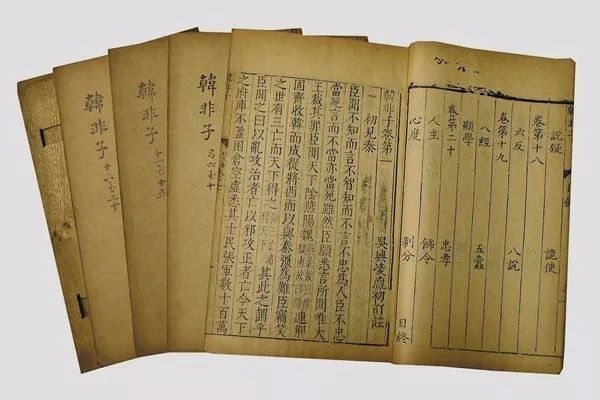 說疑 詭使
卷第十八
六反 八說
卷第十九
八經 五蠹
顯學
卷第二十
忠孝
人主 飭令
心度 制分
目終
韓非子卷第一
吳興凌瀛初訂註
初見秦
臣聞不知而言不智知而不言不忠為人臣不忠
當死言而不當亦當死雖然臣願悉言所聞唯大
王裁其罪臣聞天下陰燕陽魏 連荊
固齊收韓而成從將西面以與秦强為難臣竊笑
之世有三亡而天下得之 其此之謂乎
臣聞之曰以亂攻治者亡以邪攻正者亡今天下
之府庫不盈囷倉空虛悉其士民張軍數十百萬
韓非子
六至十
韓非子
十一至十五
韓非子
十六至二十